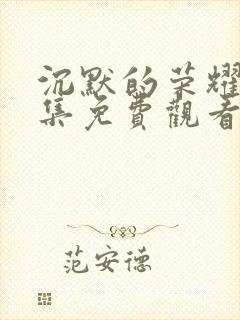 沉默的荣耀
集免費觀看
范安德